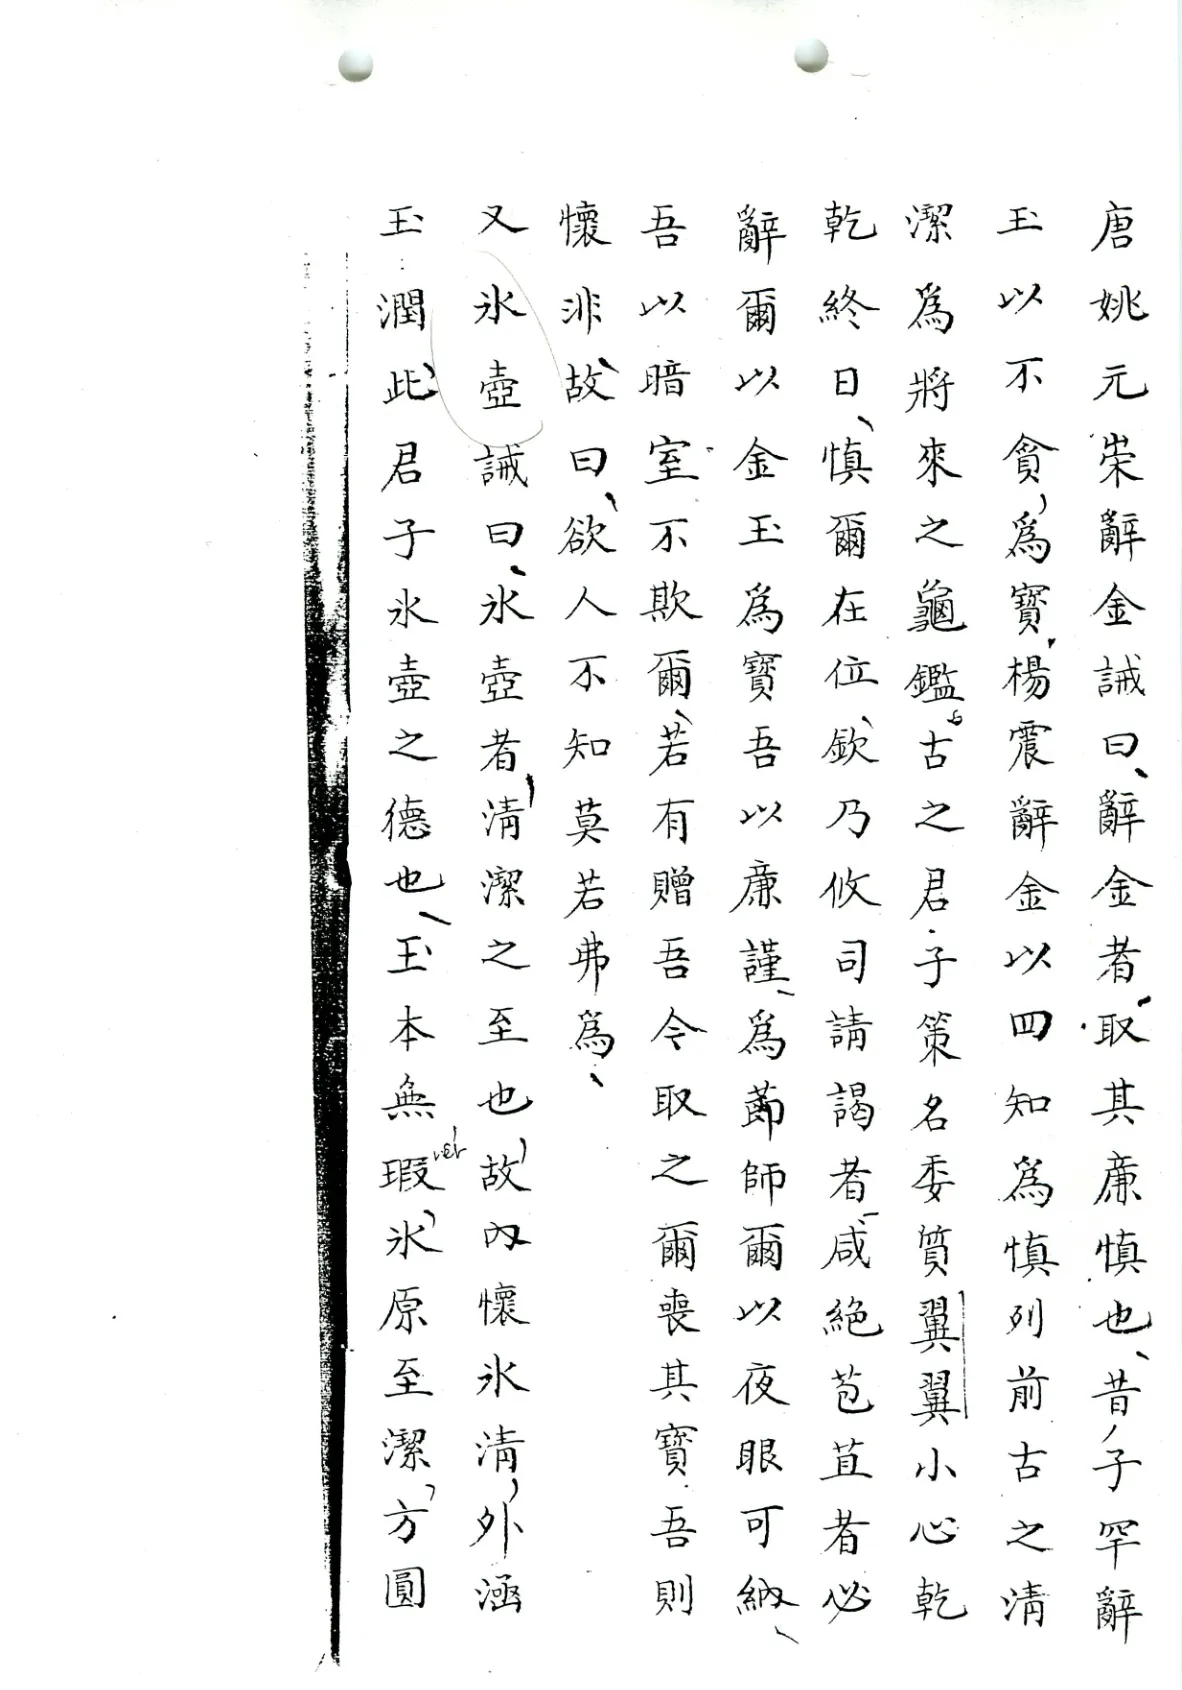 唐姚元崇辭金誡曰、辭金者、取其廉慎也、昔子罕辭
玉以不貪、為寶、楊震辭金以四知為慎列前古之清
潔為將來之龜鑑古之君子策名委質翼翼小心乾
乾終日、慎爾在位、欽乃攸司請謁者咸絕苞苴者必
辭爾以金玉為寶吾以廉謹、為節師爾以夜眼可納、
吾以暗室不欺爾、若有贈吾令取之爾喪其寶吾則
懷非故、曰、欲人不知莫若弗為、
又冰壺誡曰、冰壺者、清潔之至也、故內懷冰清、外涵
玉潤此、君子冰壺之德也、玉本無瑕、冰原至潔、方圓